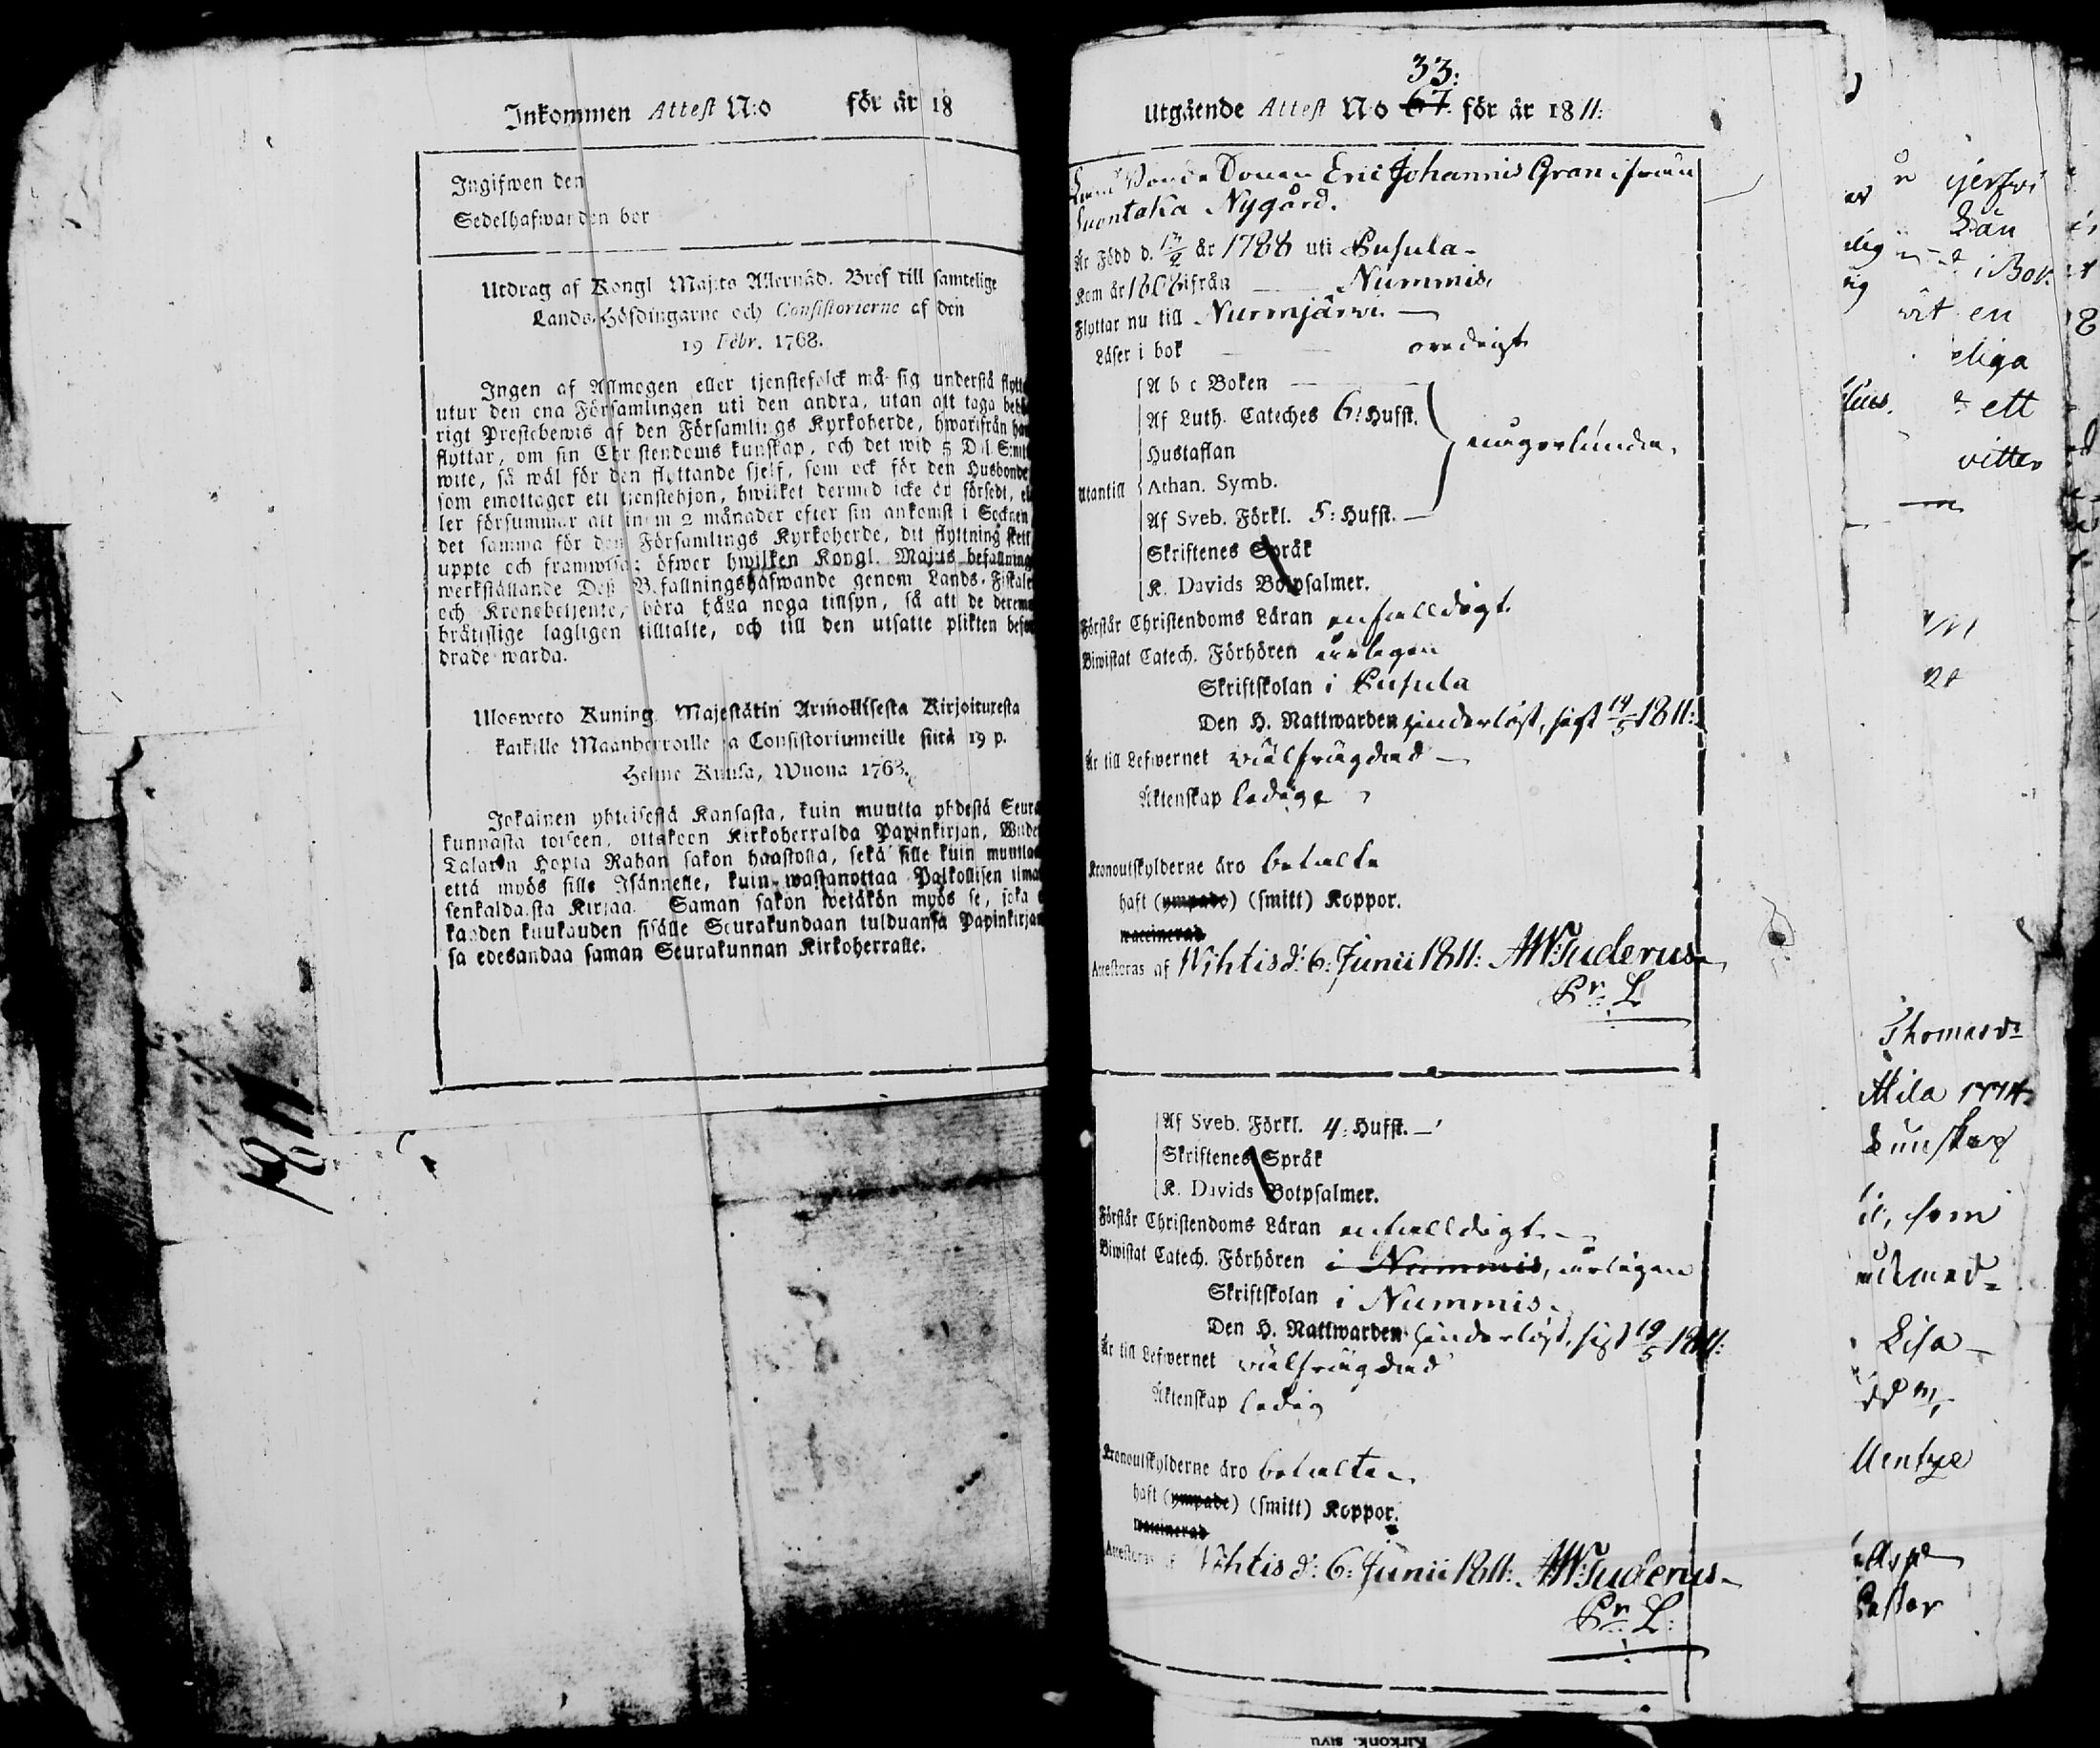 Inkommen Attest N:o för år 18
Ingifwen den
Sedelhafwanden bor
Utdrag af Kongl Maj:ts Allernåd. Bref till samtelige
Lands-Höfdingarne och Consistorierne af den
19 Febr. 1768.
Ingen af Allmogen eller tjenstefolck må sig understå flytta
utur den ena Församlingen uti den andra, utan att taga behö
rigt Prestebewis af den Församlings Kyrkoherde, hwarifrån han
flyttar, om sin Christendoms kunskap, och det wid 5 Dal S:mt
wite, så wäl för den flyttande sjelf, som ock för den Husbonde
som emottager ett tienstehjon, hwilket dermed icke är försedt, el
ler försummar att inom 2 månader efter sin ankomst i Socknen
det samma för den Församlings Kyrkoherde, dit flyttning skett
uppte och framwisa: öfwer hwilken Kongl. Maj:ts befallning
werkställande Deß Befallningshafwande genom Lands-Fiskaler
och Kronobetjente, böra håga noga tillsyn, så att de deremot
brätslige lagligen tilltalte, och till den utsatte plikten befor
drade warda.
Ulosweto Kuning. Majestätin Armollisesta Kirjoituresta
kaikille Maanherroille ja Consistoriumeille siitä 19 p.
Helme Kuusa, Wuona 1768.
Jokainen yhteisestä Kansasta, kuin muutta yhdestä Seura
kunnasta toiseen, ottakoon Kirkoherralda Papinkirjan, Wiide
Talarin Hopia Rahan sakon haastolla, sekä sille kuin muuttaa
että myös sille Isännelle, kuin wastanottaa Palkollisen ilma
senkaldaista Kirjaa. Saman sakon wetäkön myös se, joka e
kahden kuukauden sisälle Seurakundaan tulduansa Papinkirjan
sa edesandaa saman Seurakunnan Kirkoherralle.
1811.
33:
Utgående Attest No 67 för år 1811:
Bonde Sonen Eric Johannis Gran ifrån
Suontaka Nygård.
Är Född d. år 1788 uti Pusula -
Kom år 1808 ifrån Nummis,
Flyttar nu till Nurmijärwi. —
Läser i bok oredigt
A b c Boken
Af Luth. Cateches 6: Hufst.
Hustaflan någorlunda,
Utantill Athan. Symb.
Af Sveb. Förkl. 5: Hufst. —
Skriftenes Språk
K. Davids Botpsalmer.
Förstår Christendoms Läran enfalldigt.
Biwistat Catech. Förhören årligen
Skriftskolan i Pusula
Den H. Nattwarden hinderlöst, sist 19/5 1811:
Är till Lefwernet wälfrägdad —
Äktenskap ledig
Kronoutskylderne äro betalte
haft (ympade) (smitt) Koppor.
waccinerad
Attesteras af Wihtis d: 6: Junii 1811: AW:Tuderus
Pr: L.
Af Sveb. Förkl. 4: Hufst. —
Skriftenes Språk
K. Davids Botpsalmer.
Förstår Christendoms Läran enfalldigt. —
Biwistat Catech. Förhören i Nummis, årligen
Skriftskolan i Nummis.
Den H. Nattwarden hinderlöst, sist 19/5 1811:
Är till Lefwernet wälfrägdad
Äktenskap ledig
Kronoutskylderne äro betalte
haft (ympade) (smitt) Koppor.
waccinerad
Attesteras af Wihtis d: 6: Junii 1811: AW:Tuderus
Pr: L:
i Bok.
en
eliga
ett
Thomasd:
Attila 1774.
Kunskap
som
Lisa
Pastor
Kirkonk. sivu